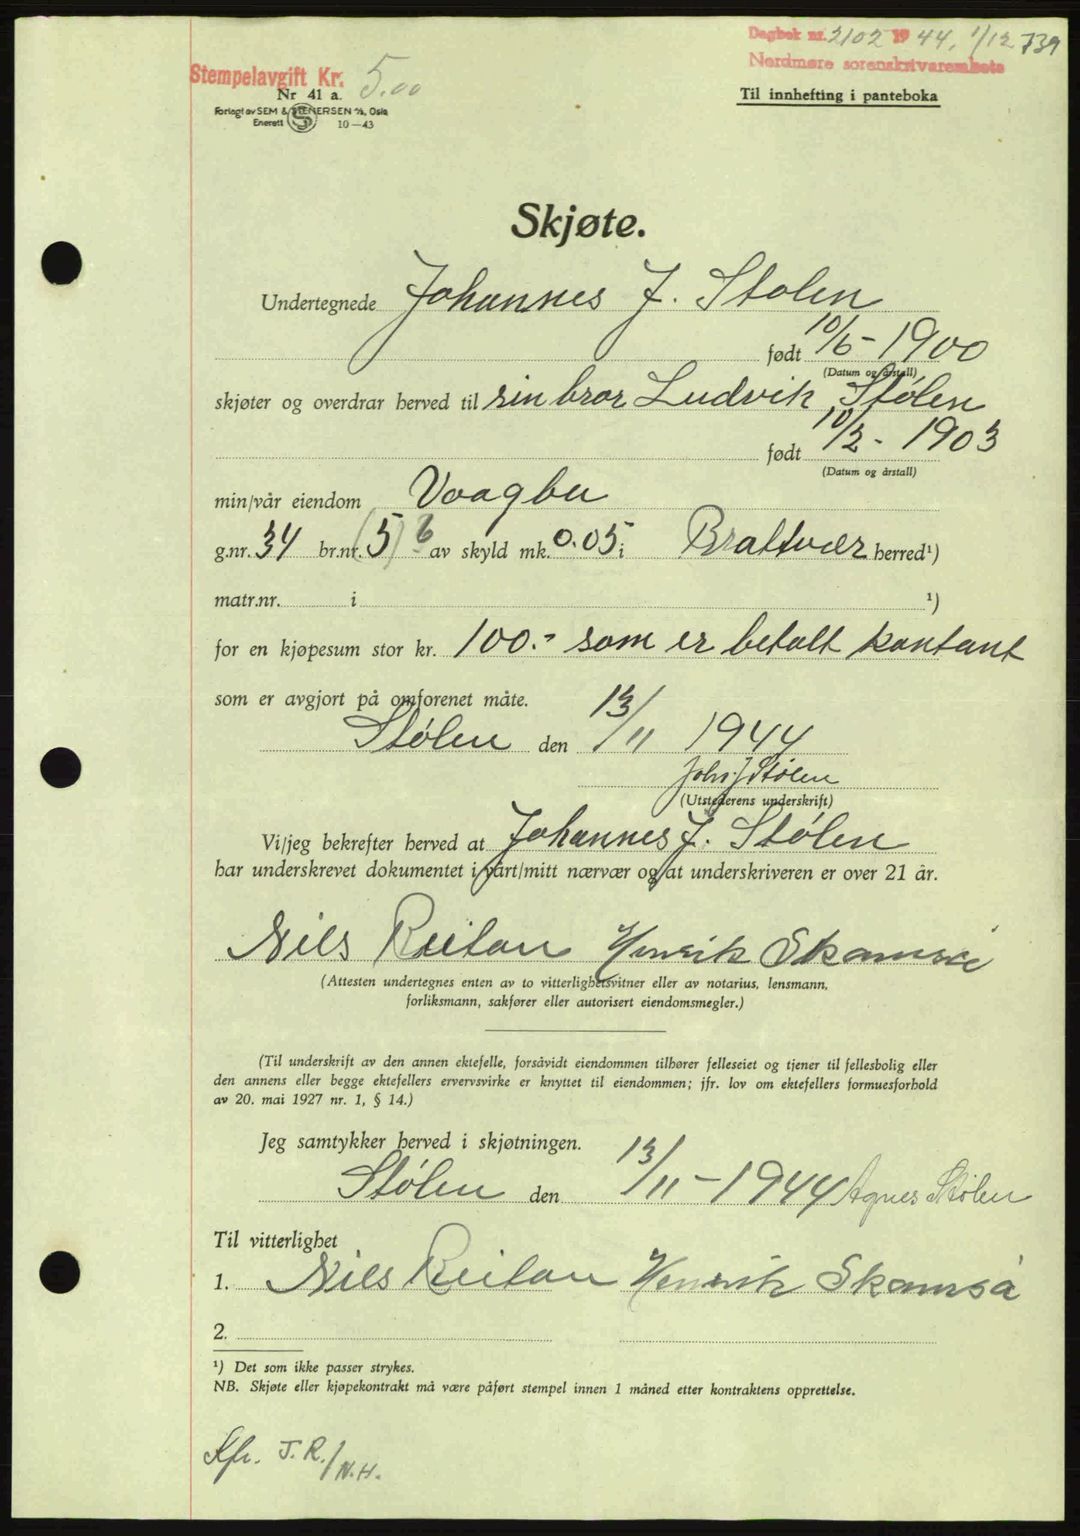 Dagbok nr. 2102 1944, 1/12 739
Nordmøre sorenskriverembete
Stempelavgift Kr. 5.00
Nr 41 a.
Til innhefting i panteboka
Forlagt av SEM & STENERSEN A/S, Oslo
Enerett S 10-43
Skjøte.
Undertegnede Johannes J. Stølen
født 10/6 - 1900
(Datum og årstall)
skjøter og overdrar herved til sin bror Ludvik Stølen
født 10/2 - 1903
(Datum og årstall)
min/vår eiendom Vaagbu
g.nr. 34 br.nr. (5) 6 av skyld mk. 0.05 i Brattvær herred¹)
matr.nr. i ¹)
for en kjøpesum stor kr. 100.- som er betalt kontant
som er avgjort på omforenet måte.
Stølen den 13/11 1944
Johs J Stølen
(Utstederens underskrift)
Vi/jeg bekrefter herved at Johannes J. Stølen
har underskrevet dokumentet i vårt/mitt nærvær og at underskriveren er over 21 år.
Nils Reitan Henrik Skamsø
(Attesten undertegnes enten av to vitterlighetsvitner eller av notarius, lensmann,
forliksmann, sakfører eller autorisert eiendomsmegler.)
(Til underskrift av den annen ektefelle, forsåvidt eiendommen tilhører felleseiet og tjener til fellesbolig eller
den annens eller begge ektefellers ervervsvirke er knyttet til eiendommen; jfr. lov om ektefellers formuesforhold
av 20. mai 1927 nr. 1, § 14.)
Jeg samtykker herved i skjøtningen.
Stølen den 13/11 - 1944 Agnes Stølen
Til vitterlighet
1. Nils Reitan Henrik Skamsø
2.
¹) Det som ikke passer strykes.
NB. Skjøte eller kjøpekontrakt må være påført stempel innen 1 måned etter kontraktens opprettelse.
Kfr. J.R./N.H.